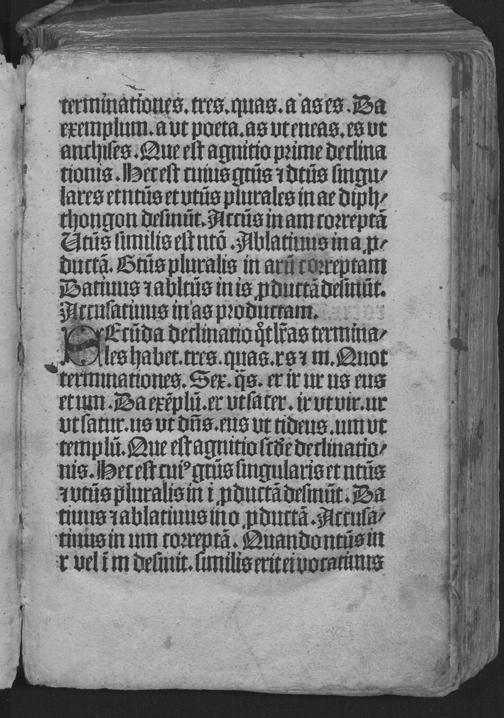 terminationes. tres. quas. a as es. Da
exemplum. a vt poeta. as vt eneas. es vt
anchises. Que est agnitio prime declina
tionis. Hec est cuius gtũs ⁊ dtũs singu/
lares et ntũs et vtũs plurales in ae diph/
thongon desinũt. Accũs in am correptã
Vtũs similis est ntõ. Ablatiuus in a ꝓ/
ductã. Gtũs pluralis in arũ correptam
Datiuus ⁊ abltũs in is ꝓductã desinũt.
Accusatiuus in as productam.
SEcũda declinatio qͦt lr̃as termina/
les habet. tres. quas. r s ⁊ m. Quot
terminationes. Sex. q̃s. er ir ur us eus
et um. Da exẽplũ. er vt sacer. ir vt vir. ur
vt satur. us vt dñs. eus vt tideus. um vt
templũ. Que est agnitio scd̃e declinatio/
nis. Hec est cuiꝰ gtũs singularis et ntũs
⁊ vtũs pluralis in i ꝓductã desinũt. Da
tiuus ⁊ ablatiuus in o ꝓductã. Accusa/
tiuus in um correptã. Quando ntũs in
r vel ĩ m desinit. similis erit ei vocatiuus